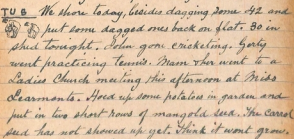 TUS We shore today, besides dagging some 42 and
put some dagged ones back on flat. 30 in
shed tonight. John gone cricketing. Gerty
went practicing Tennis. Mam Ther went to a
Ladies Church meeting this afternoon at Miss
Learmonts. Hoed up some potatoes in garden and
put in two short hours of mangold seed. The carrot
seed has not showed up yet. Think it wont grow